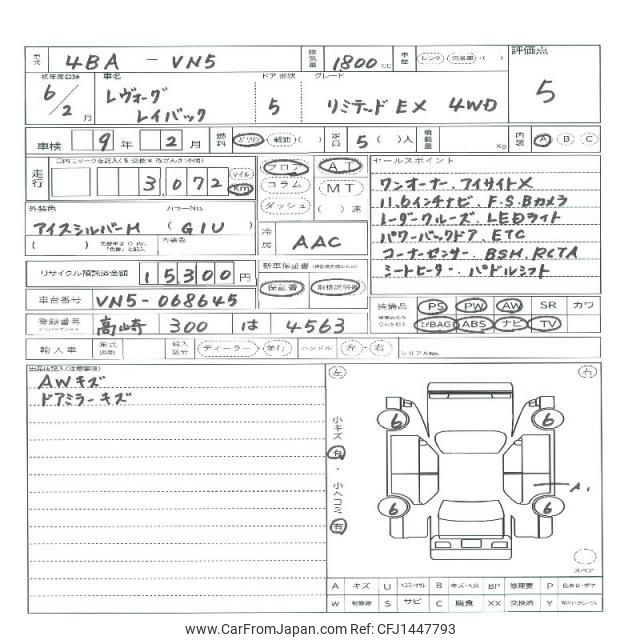 型式 4BA - VN5 排気量 1800 cc 車歴 レンタ ( ) 評価点
初年度登録 車名 ドア 形状 グレード
6/2月 レヴォーグ レイバック 5 リミテッド EX 4WD 5
車検 9年 2月 燃料 ガソリン 軽油 ( ) 定員 5 ( )人 積載量 Kg 内装 A B C
走行 3,072 マイル Km フロア AT セールスポイント
コラム MT ワンオーナー.アイサイトX
ダッシュ ( ) 速 11.6インチナビ.F.S.Bカメラ
外装色 カラーNo. レーダークルーズ.LEDライト
アイスシルバーM (G1U) 冷房 AAC パワーバックドア.ETC
( ) 内装色 コーナーセンサー.BSM.RCTA
リサイクル預託済金額 15300円 新車保証書 シートヒーター.パドルシフト
車台番号 VN5-068645 保証書 取扱説明書 装備品 PS PW AW SR カワ
登録番号 高崎 300 は 4563 エアBAG ABS ナビ TV
輸入車 年式 輸入区分 ディーラー・並行 ハンドル 左・右 シリアルNo.
出品店記入(注意事項) 左 右
AWキズ
ドアミラーキズ
小キズ 有 ・ 小ヘコミ 有
6 6
A1
6 6
スペア
A キズ U B キズ・ヘコ BP 修理要 P
W S サビ C 腐食 XX 交換済 Y
www.CarFromJapan.com - CFJ1447793